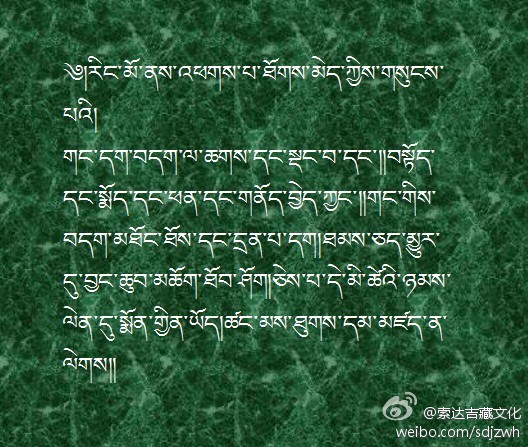 ༄༅།རིང་མོ་ནས་འཕགས་པ་ཐོགས་མེད་ཀྱིས་གསུངས་
པའི།
གང་དག་བདག་ལ་ཆགས་དང་སྡང་བ་དང་།།བསྟོད་
དང་སྨོད་དང་ཕན་དང་གནོད་བྱེད་ཀྱང་།།གང་གིས་
བདག་མཐོང་ཐོས་དང་དྲན་པ་དག།ཐམས་ཅད་མྱུར་
དུ་བྱང་ཆུབ་མཆོག་ཐོབ་ཤོག།ཅེས་པ་དེ་མི་ཚེའི་ཉམས་
ལེན་དུ་སྨོན་གྱིན་ཡོད།ཚང་མས་ཐུགས་དམ་མཛད་ན་
ལེགས།།
@索达吉藏文化
weibo.com/sdjzwh